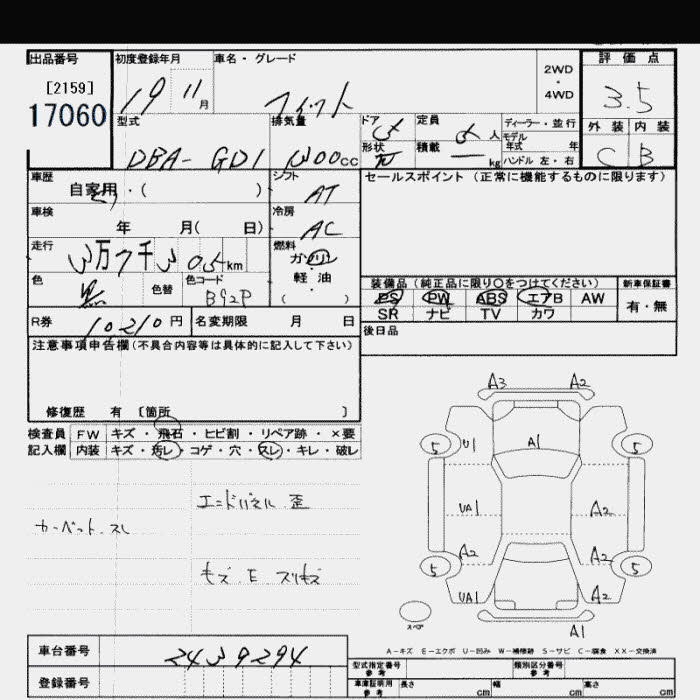 出品番号 初度登録年月 車名・グレード 2WD ・ 4WD 評価点
[2159] 19 11月 フィット 3.5
17060
型式 排気量 ドア 定員 人 ディーラー・並行 外装 内装
モデル年式 年
DBA- GD1 1300cc 形状 積載 kg ハンドル 左・右 C B
車歴 シフト セールスポイント (正常に機能するものに限ります)
自家用・( ) AT
車検 冷房
年 月( 日) AC
走行 燃料
3万7千3 05km ガソリン
軽・油
( )
色 黒 色替 色コード B92P
装備品(純正品に限り○をつけてください) 新車保証書
PS PW ABS エアB AW 有・無
SR ナビ TV カワ
R券 10210円 名変期限 月 日
後日品
注意事項申告欄(不具合内容等は具体的に記入して下さい)
修復歴 有 〔箇所 〕
検査員 FW キズ・飛石・ヒビ割・リペア跡・×要
記入欄 内装 キズ・汚レ・コゲ・穴・スレ・キレ・破レ
エンドパネル 歪
カーペット スレ
キズ E スリキズ
A3 A2
5 U1 A1 5
UA1 A2
A2 A2
5 5
UA1 A2
スペア
A1
A-キズ E-エクボ U-凹み W-補修跡 S-サビ C-腐食 XX-交換済
車台番号 2439294
型式指定番号 参考 類別区分番号 参考
登録番号
車庫証明用 参考 長さ cm 幅 cm 高さ cm